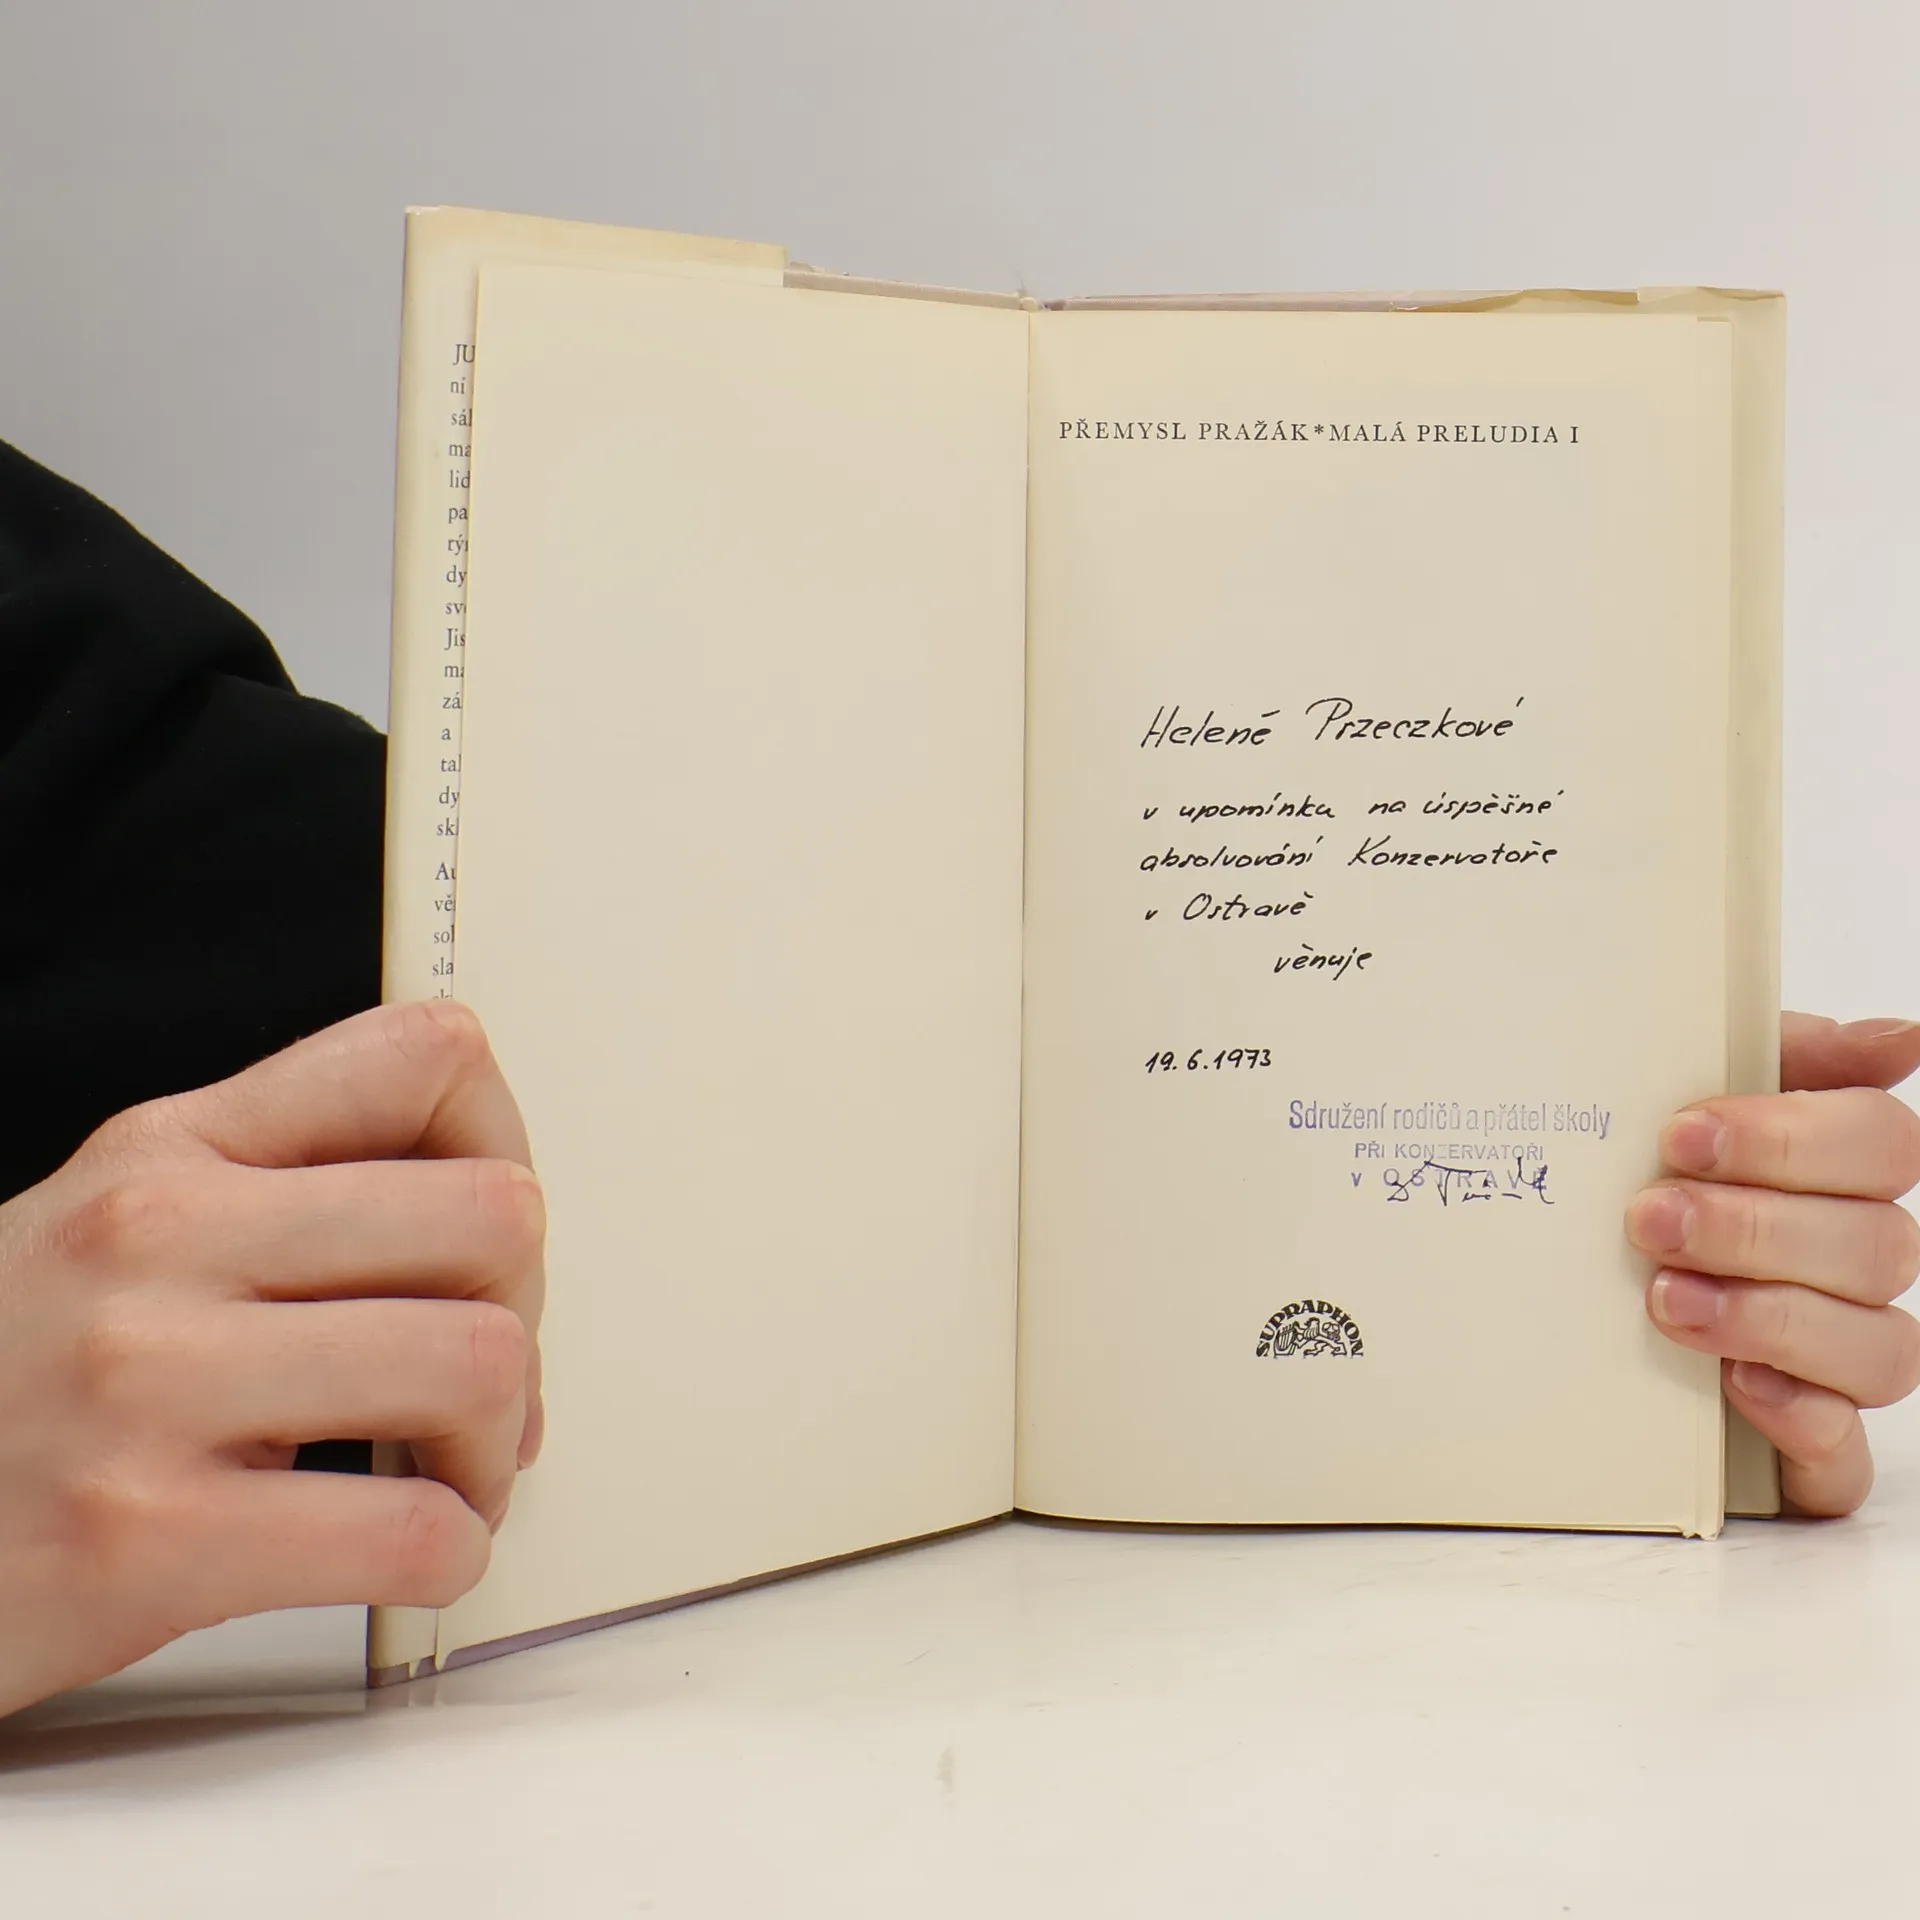 JU
ni
sál
ma
lid
pa
rý
dy
sv
Jis
ma
zá
a
tal
dy
sk
Au
vě
sol
sla
PŘEMYSL PRAŽÁK*MALÁ PRELUDIA I
Heleně Przeczkové
v upomínku na úspěšné
absolvování Konzervatoře
v Ostravě
věnuje
19.6.1973
Sdružení rodičů a přátel školy
PŘI KONZERVATOŘI
V OSTRAVĚ
SUPRAPHON